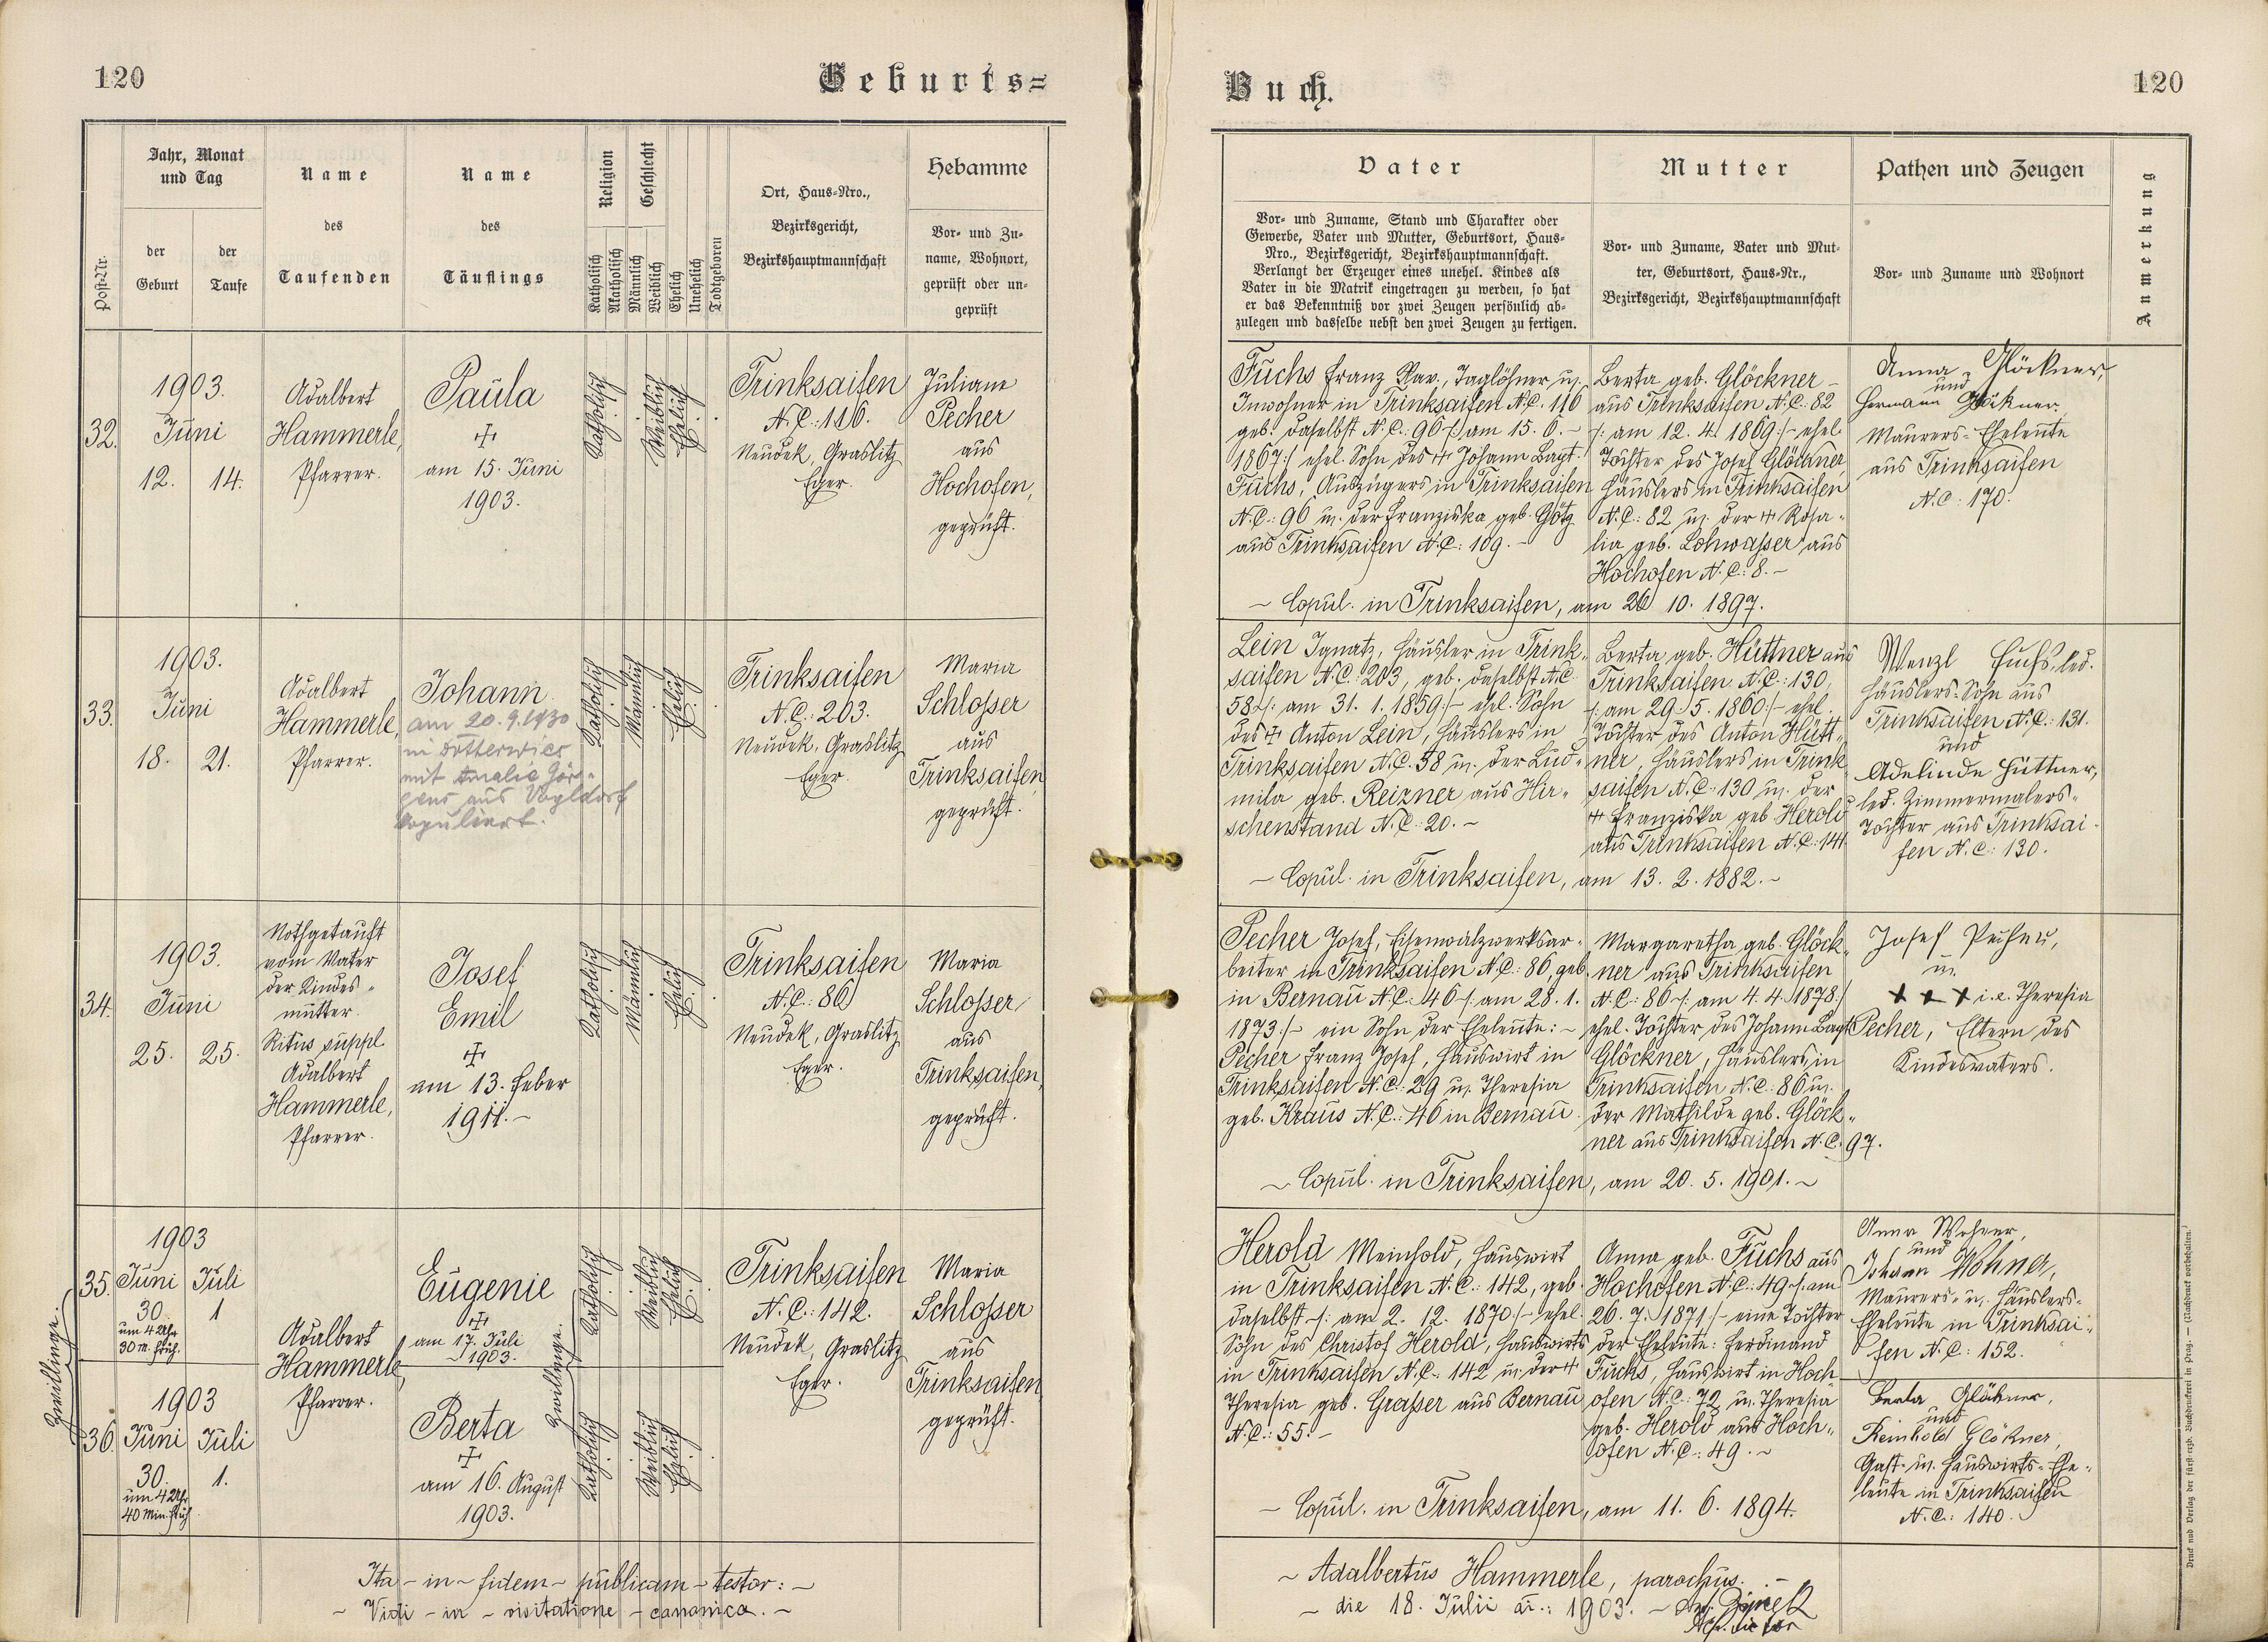 120
Geburts=
Jahr, Monat
und Tag
der
Geburt
der
Taufe
Post-Nr.
Name
des
Taufenden
Name
des
Täuflings
Religion
Katholisch
Akatholisch
Geschlecht
Männlich
Weiblich
Ehelich
Unehelich
Todtgeboren
Ort, Haus=Nro.,
Bezirksgericht,
Bezirkshauptmannschaft
Hebamme
Vor= und Zu=
name, Wohnort,
geprüft oder un=
geprüft
32.
1903.
Juni
12. 14.
Adalbert
Hammerle,
Pfarrer.
Paula
am 15. Juni
1903.
Katholisch
Weiblich
Ehelich
Trinksaifen
N.C.: 116.
Neudek, Graslitz
Eger.
Juliane
Pecher
aus
Hochofen,
geprüft.
33.
1903.
Juni
18. 21.
Adalbert
Hammerle,
Pfarrer.
Johann
am 20.9.1930
in Dotterwies
mit Amalie
aus Vogldorf
kopuliert.
Katholisch
Männlich
Ehelich
Trinksaifen
N.C.: 203.
Neudek, Graslitz
Eger.
Maria
Schlosser
aus
Trinksaifen,
geprüft.
34.
1903.
Juni
25. 25.
Nothgetauft
vom Vater
der Kindes=
mutter.
Ritus suppl.
Adalbert
Hammerle,
Pfarrer.
Josef
Emil
am 13. Feber
1911.–
Katholisch
Männlich
Ehelich
Trinksaifen
N.C.: 86
Neudek, Graslitz
Eger.
Maria
Schlosser
aus
Trinksaifen,
geprüft.
Zwillinge.
35.
1903
Juni Juli
30. 1
um 4 Uhr
30 m. früh.
Adalbert
Hammerle,
Pfarrer.
Eugenie
am 17. Juli
1903.
Zwillinge.
Katholisch
Weiblich
Ehelich
Trinksaifen
N.C.: 142.
Neudek, Graslitz
Eger.
Maria
Schlosser
aus
Trinksaifen,
geprüft.
36.
1903
Juni Juli
30. 1.
um 4 Uhr
40 Min. früh.
Berta
am 16. August
1903.
Katholisch
Weiblich
Ehelich
Ita – in – fidem – publicam – testor: –
– Vidi – in – visitatione – canonica. –
Buch.
120
Vater
Vor= und Zuname, Stand und Charakter oder
Gewerbe, Vater und Mutter, Geburtsort, Haus=
Nro., Bezirksgericht, Bezirkshauptmannschaft.
Verlangt der Erzeuger eines unehel. Kindes als
Vater in die Matrik eingetragen zu werden, so hat
er das Bekenntniß vor zwei Zeugen persönlich ab=
zulegen und dasselbe nebst den zwei Zeugen zu fertigen.
Mutter
Vor= und Zuname, Vater und Mut=
ter, Geburtsort, Haus=Nr.,
Bezirksgericht, Bezirkshauptmannschaft
Pathen und Zeugen
Vor= und Zuname und Wohnort
Anmerkung
Fuchs Franz Xav., Taglöhner u.
Inwohner in Trinksaifen N.C. 116
geb. daselbst N.C.: 96 /: am 15. 6. –
1867 :/ ehel. Sohn des Johann Bapt.
Fuchs, Auszügers in Trinksaifen
N.C.: 96 u. der Franziska geb. Götz
aus Trinksaifen N.C.: 109. –
Berta geb. Glöckner –
aus Trinksaifen N.C.: 82
/: am 12. 4. 1869 :/ – ehel.
Tochter des Josef Glöckner,
Häuslers in Trinksaifen
N.C.: 82 u. der Rosa=
lia geb. Lohwasser aus
Hochofen N.C.: 8. –
Anna Glöckner,
und
Hermann Glöckner,
Maurers=Eheleute
aus Trinksaifen
N.C.: 170.
– Copul. in Trinksaifen, am 26. 10. 1897.
Lein Ignatz, Häusler in Trink=
saifen N.C. 203, geb. daselbst N.C.
58 /: am 31. 1. 1859 :/ – ehel. Sohn
des Anton Lein, Häuslers in
Trinksaifen N.C. 58 u. der Lud=
mila geb. Reizner aus Hir=
schenstand N.C.: 20. –
Berta geb. Hüttner aus
Trinksaifen N.C.: 130,
/: am 29. 5. 1860 :/ – ehel.
Tochter des Anton Hütt=
ner, Häuslers in Trink=
saifen N.C.: 130 u. der
Franziska geb. Herold
aus Trinksaifen N.C.: 141.
Wenzl Fuchs, led.
Häuslers=Sohn aus
Trinksaifen N.C.: 131.
und
Adelinde Hüttner,
led. Zimmermalers=
Tochter aus Trinksai=
fen N.C.: 130.
– Copul. in Trinksaifen, am 13. 2. 1882. –
Pecher Josef, Eisenwalzwerksar=
beiter in Trinksaifen N.C.: 86, geb.
in Bernau N.C.: 46 /: am 28. 1.
1873 :/ – ein Sohn der Eheleute: –
Pecher Franz Josef, Hauswirt in
Trinksaifen N.C.: 29 u. Theresia
geb. Kraus N.C.: 46 in Bernau.
Margaretha geb. Glöck=
ner aus Trinksaifen
N.C.: 86 /: am 4. 4. 1878 :/
ehel. Tochter des Johann Bapt.
Glöckner, Häuslers in
Trinksaifen N.C.: 86 u.
der Mathilde geb. Glöck=
ner aus Trinksaifen N.C. 97.
Josef Pecher,
u.
x x x i.e. Theresia
Pecher, Eltern des
Kindesvaters.
– Copul. in Trinksaifen, am 20. 5. 1901. –
Herold Meinhold, Hauswirt
in Trinksaifen N.C.: 142, geb.
daselbst /: am 2. 12. 1870 :/ – ehel.
Sohn des Christof Herold, Hauswirts
in Trinksaifen N.C.: 142 u. der
Theresia geb. Grasser aus Bernau
N.C.: 55. –
Anna geb. Fuchs aus
Hochofen N.C.: 49 /: am
26. 7. 1871 :/ – eine Tochter
der Eheleute: Ferdinand
Fuchs, Hauswirt in Hoch=
ofen N.C.: 72 u. Theresia
geb. Herold aus Hoch=
ofen N.C.: 49. –
Anna
und
Johann
Maurers= u. Häuslers=
Eheleute in Trinksai=
fen N.C.: 152.
Berta Glöckner,
und
Reinhold Glöckner,
Gast= u. Hauswirts=Ehe=
leute in Trinksaifen
N.C.: 140.
– Copul. in Trinksaifen, am 11. 6. 1894.
– Adalbertus Hammerle, parochus. –
– die 18. Julii a.: 1903. –
Druck und Verlag der fürst=erzb. Buchdruckerei in Prag. — (Nachdruck vorbehalten.)